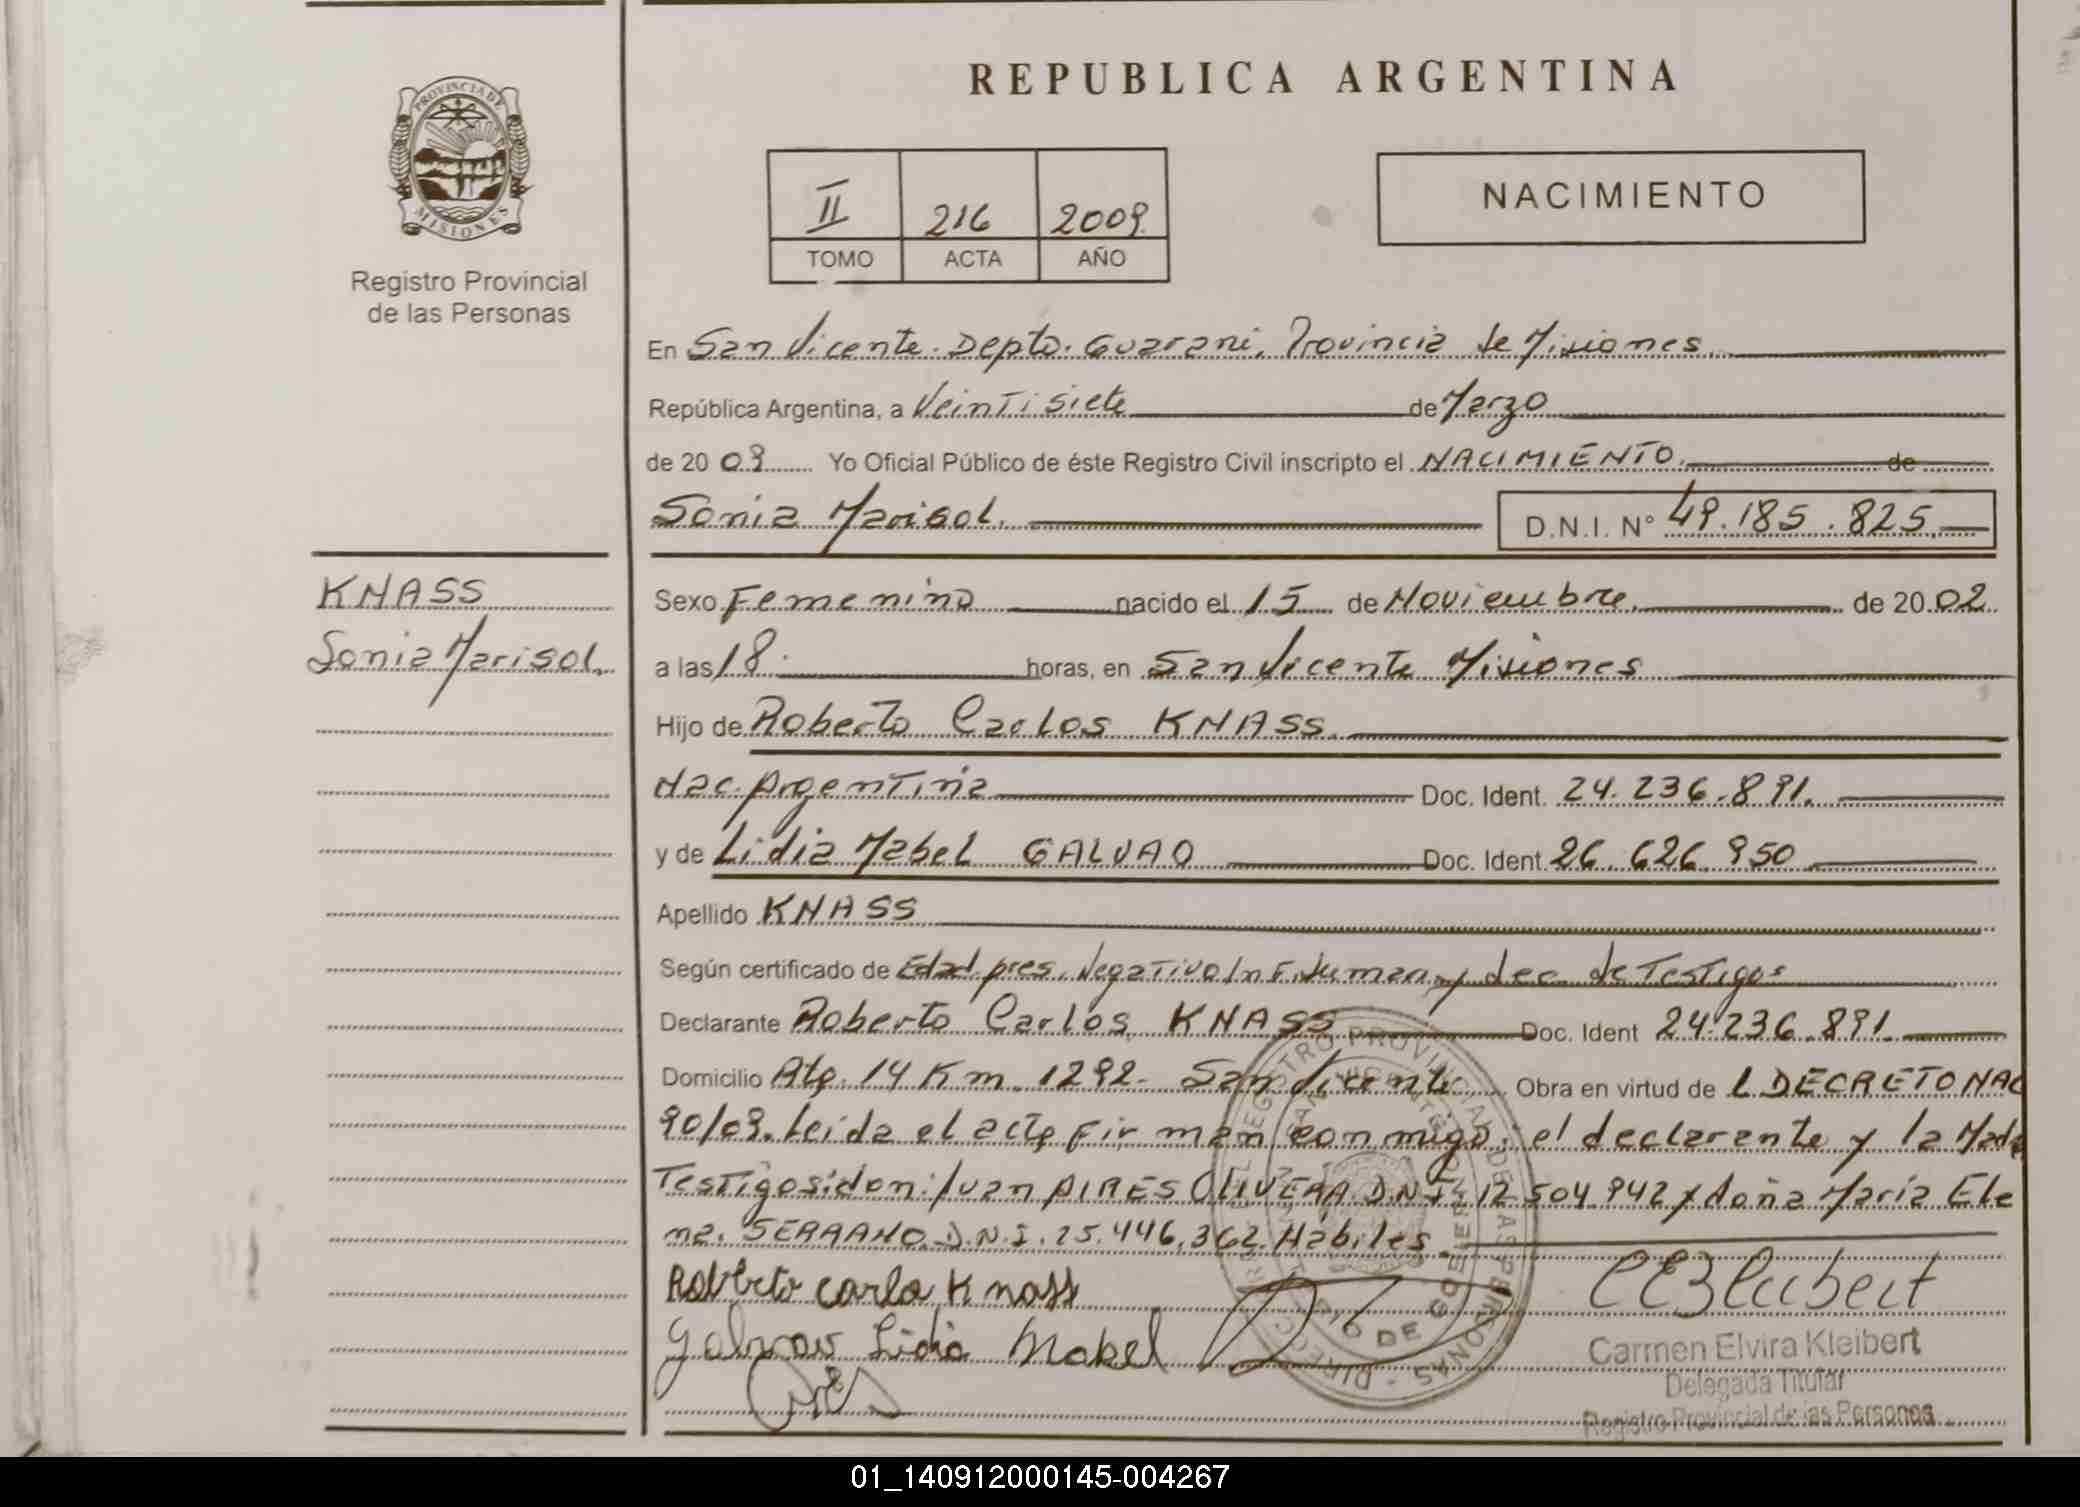 PROVINCIA DE
MISIONES
Registro Provincial
de las Personas
REPUBLICA ARGENTINA
II 216 2009
TOMO ACTA AÑO
NACIMIENTO
En San Vicente. Depto. Guarani, Provincia de Misiones.
República Argentina, a Veintisiete de Marzo
de 20 09 Yo Oficial Público de éste Registro Civil inscripto el NACIMIENTO. de
Sonia Marisol. D.N.I. Nº 49.185.825
KNASS
Sonia Marisol.
Sexo Femenino nacido el 15 de Noviembre. de 20 02
a las 18. horas, en San Vicente Misiones
Hijo de Roberto Carlos KNASS.
Nac. Argentina Doc. Ident. 24.236.891.
y de Lidia Mabel GALVAO Doc. Ident. 26.626.950
Apellido KNASS
Según certificado de Edad pres. Negativo Inf. Suman y dec. de Testigos
Declarante Roberto Carlos KNASS Doc. Ident 24.236.891.
Domicilio Atg. 14 Km. 1292- San Vicente Obra en virtud de L DECRETO NAC
90/09. Leida el acta firman conmigo: el declarante y la Madre
Testigos: don: Juan AIRES OLIVERA D.N.I. 12.504.942 y doña Maria Ele
na. SERRANO. D.N.I. 25.446.362. Habiles.
Roberto Carlo Knass
Galvao Lidia Mabel
Carmen Elvira Kleibert
Delegada Titular
Registro Provincial de las Personas
01_140912000145-004267